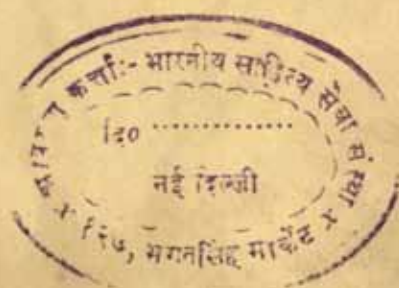 कर्त्ता:- भारतीय साहित्य सेवा संस्था
दि० ..............
नई दिल्ली
× १२७, भगतसिंह मार्केट ×